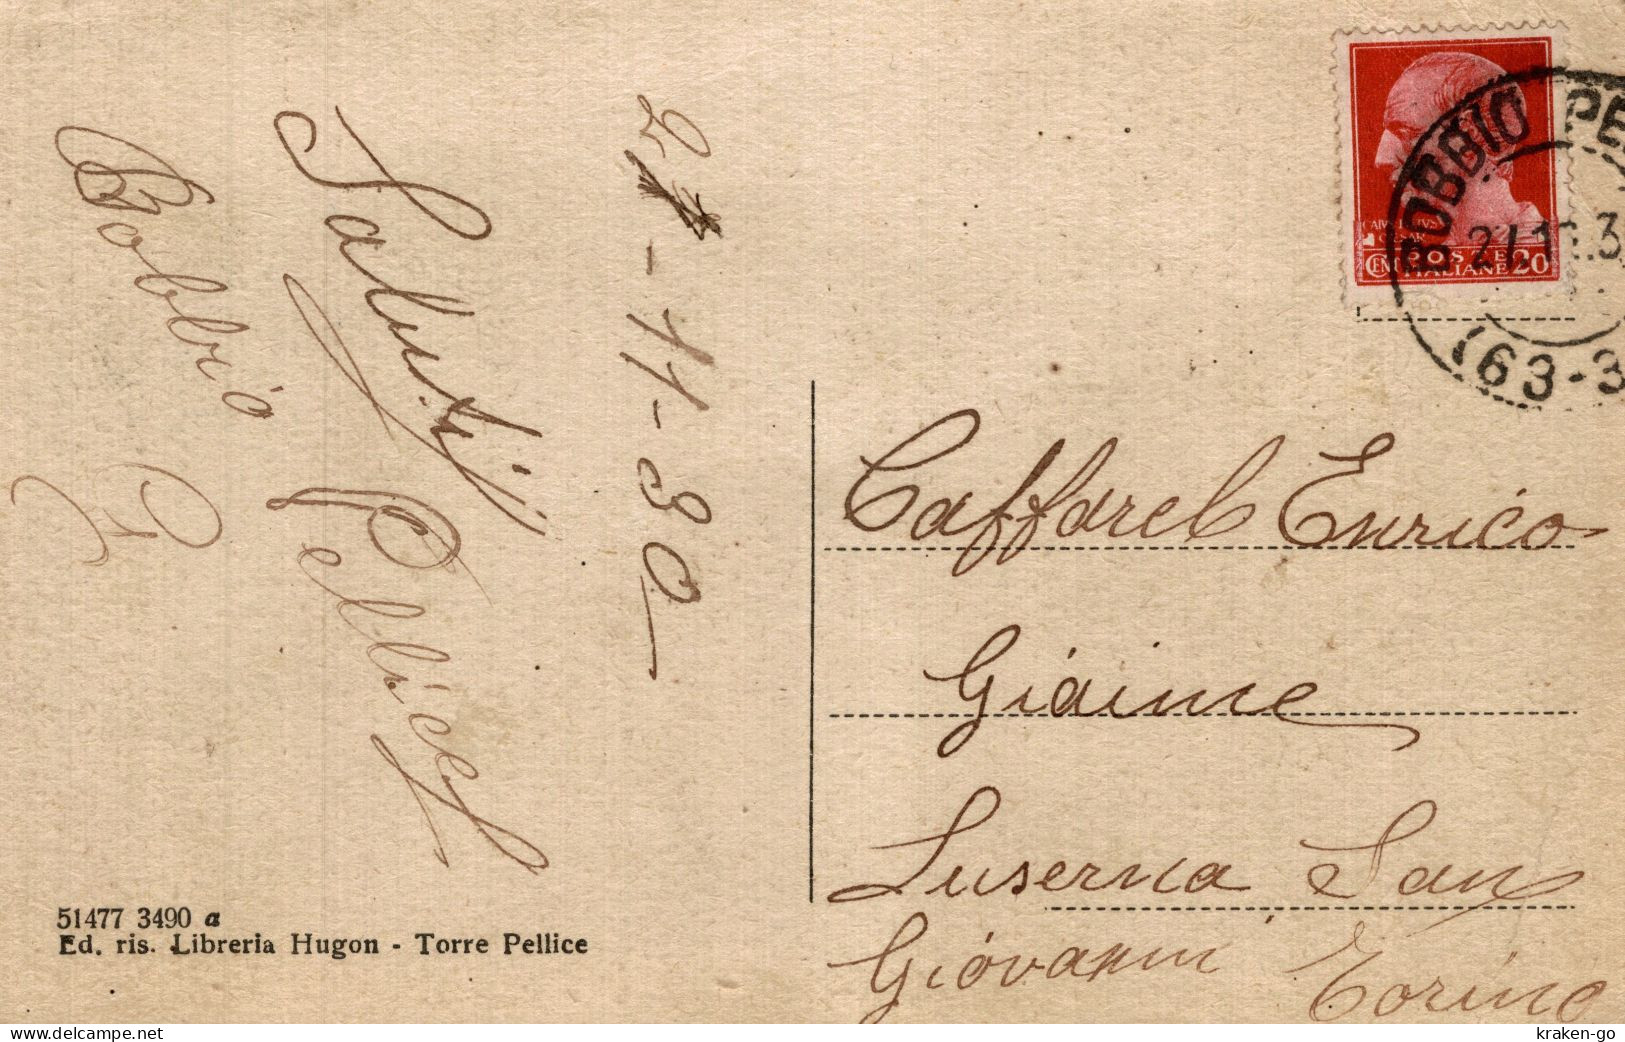 27-11-30
Saluti
Bobbio Pellice
51477 3490 a
Ed. ris. Libreria Hugon - Torre Pellice
CEMI POSTE ITALIANE 20
BOBBIO PE
27.11.3
(63-3
Caffarel Enrico
Giaime
Luserna San
Giovanni Torino
delcampe.net
kraken-go